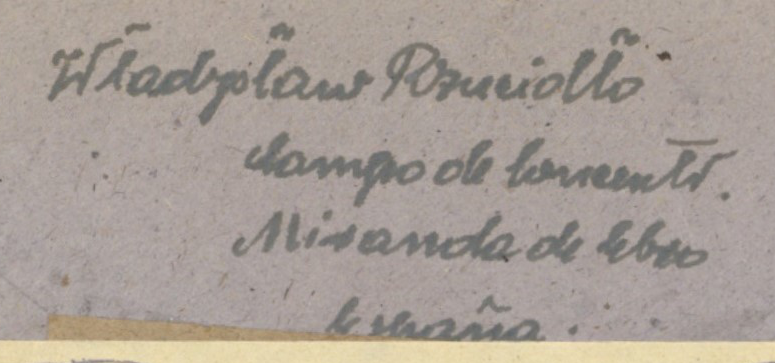 Władysław
Campo de Concentr.
Miranda de Ebro
España.